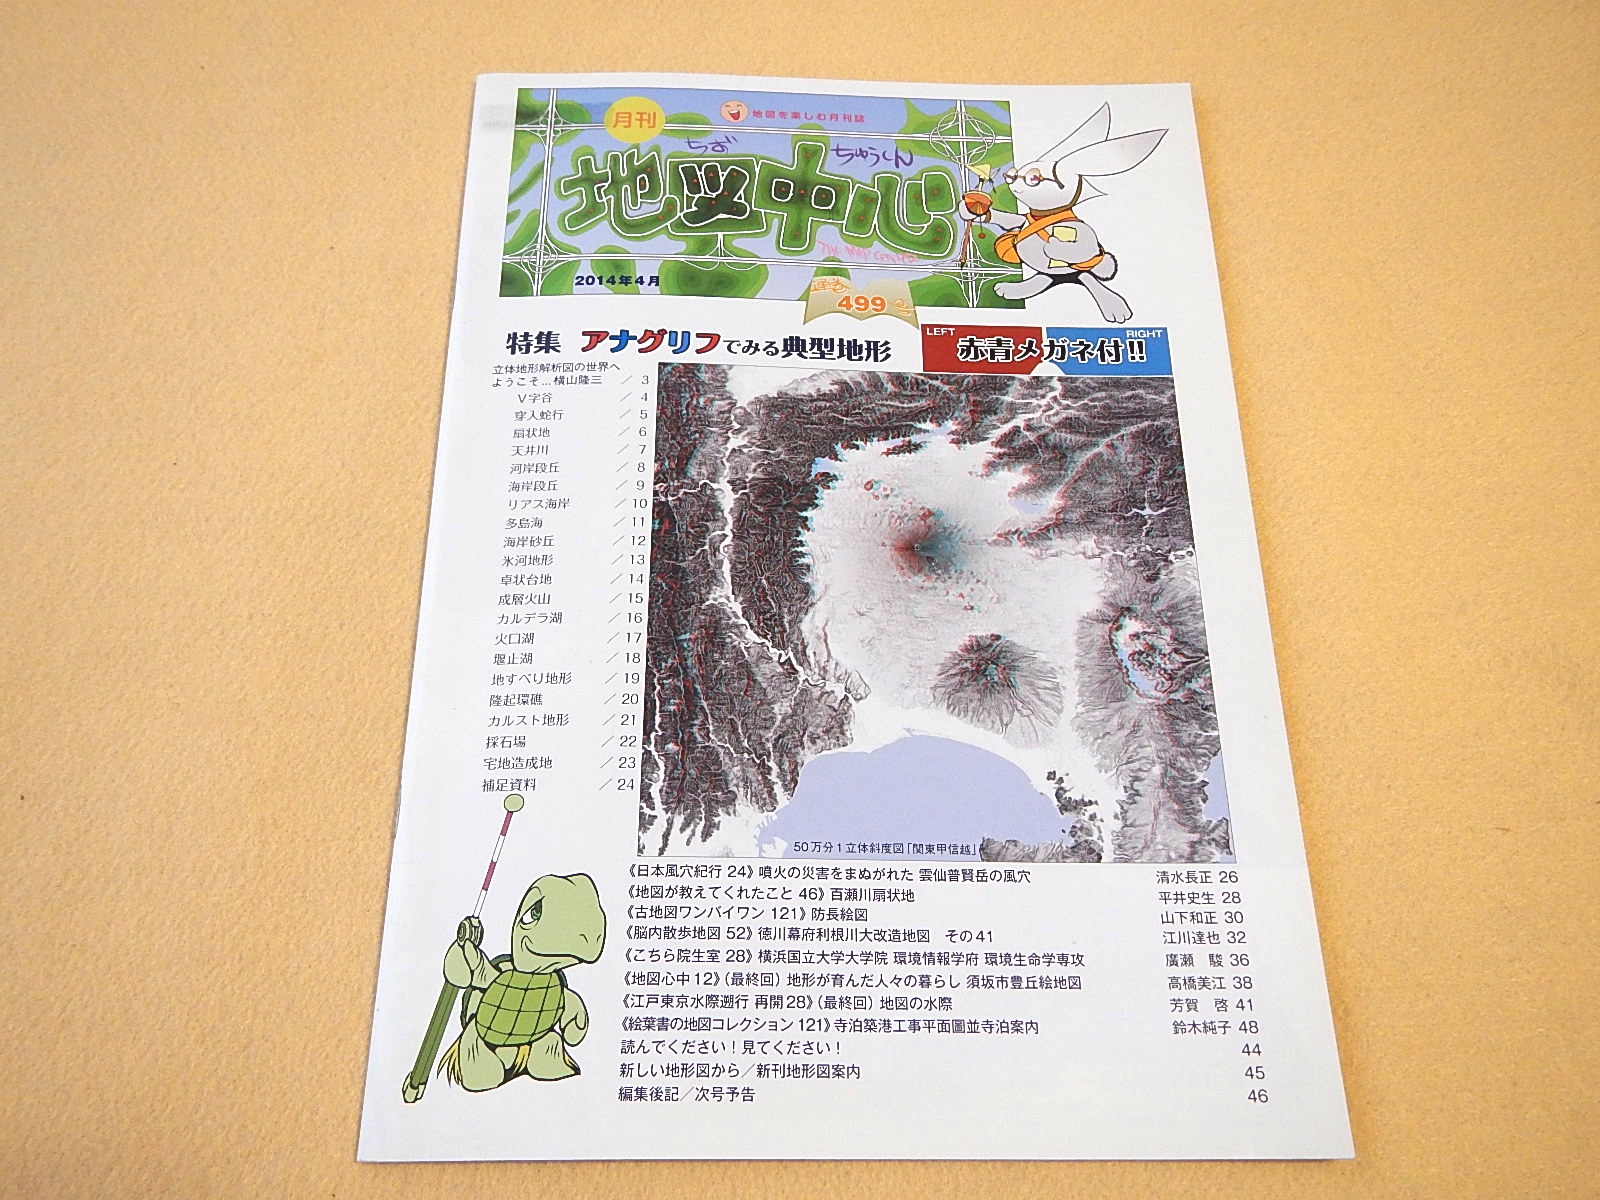 月刊
地図を楽しむ月刊誌
ちず ちゅうしん
地図中心
THE MAP CENTER
2014年4月
通巻
499
号
特集 アナグリフでみる典型地形
LEFT RIGHT
赤青メガネ付!!
立体地形解析図の世界へ
ようこそ…横山隆三 / 3
V字谷 / 4
穿入蛇行 / 5
扇状地 / 6
天井川 / 7
河岸段丘 / 8
海岸段丘 / 9
リアス海岸 / 10
多島海 / 11
海岸砂丘 / 12
氷河地形 / 13
卓状台地 / 14
成層火山 / 15
カルデラ湖 / 16
火口湖 / 17
堰止湖 / 18
地すべり地形 / 19
隆起環礁 / 20
カルスト地形 / 21
採石場 / 22
宅地造成地 / 23
補足資料 / 24
50万分1立体斜度図「関東甲信越」
《日本風穴紀行 24》噴火の災害をまぬがれた 雲仙普賢岳の風穴 清水長正 26
《地図が教えてくれたこと 46》百瀬川扇状地 平井史生 28
《古地図ワンバイワン 121》防長絵図 山下和正 30
《脳内散歩地図 52》徳川幕府利根川大改造地図 その41 江川達也 32
《こちら院生室 28》横浜国立大学大学院 環境情報学府 環境生命学専攻 廣瀬 駿 36
《地図心中 12》(最終回) 地形が育んだ人々の暮らし 須坂市豊丘絵地図 高橋美江 38
《江戸東京水際遡行 再開28》(最終回) 地図の水際 芳賀 啓 41
《絵葉書の地図コレクション 121》寺泊築港工事平面圖並寺泊案内 鈴木純子 48
読んでください!見てください! 44
新しい地形図から/新刊地形図案内 45
編集後記/次号予告 46